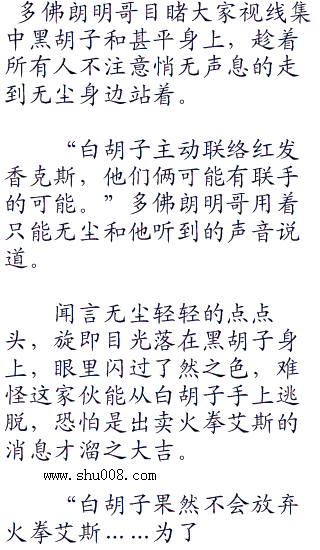 多佛朗明哥目睹大家视线集
中黑胡子和甚平身上，趁着
所有人不注意悄无声息的走
到无尘身边站着。
“白胡子主动联络红发
香克斯，他们俩可能有联手
的可能。”多佛朗明哥用着
只能无尘和他听到的声音说
道。
闻言无尘轻轻的点点
头，旋即目光落在黑胡子身
上，眼里闪过了然之色，难
怪这家伙能从白胡子手上逃
脱，恐怕是出卖火拳艾斯的
消息才溜之大吉。
www.shu008.com
“白胡子果然不会放弃
火拳艾斯……为了